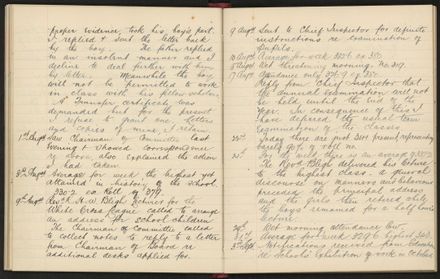 proper evidence, took his boy's part.
I replied & sent the letter back
by the boy. The father replied
in an insolent manner and I
decline to deal further with him
by letter. Meanwhile the boy
will not be permitted to work
in class with his fellow scholars.
A Transfer certificate was
demanded but for the present
I refuse to grant one. Letters
and copies of mine I retain.
1st Augt Saw Chairman of Committee last
evening & showed correspondence
of boy, also explained the action
I had taken.
8th Augt Average for week the highest yet
attained in history of the school.
330.2 ex Roll of 379.
9th Augt Revd H. Weigh lecturer for the
White Cross League called to arrange
an address for school children
The Chairman of Committee called
to collect notes to reply to a letter
from Chairman of Board re
additional desks applied for.
9 Augt Sent to Chief Inspector for definite
instructions re examination of
pupils.
Average for week
Wet threatening morning. No. 319.
17 Augt Attendance only
Reply from Chief Inspector that
the annual examination will not
be held until the end of the
year. In consequence of this I
have deferred the usual term
examination of the classes.
22nd Today there are 345 present representing
barely 90% of roll no.
for the week there is an average of
The Revd Bligh delivered his lecture
to the highest class. A general
discourse on manners and behaviour
preceded the principal address
and the girls then retired while
the boys remained for a half hours
lecture.
Wet morning attendance
Average for week 329.6 highest
Notifications received from Education
re Schools Exhibition of work in October